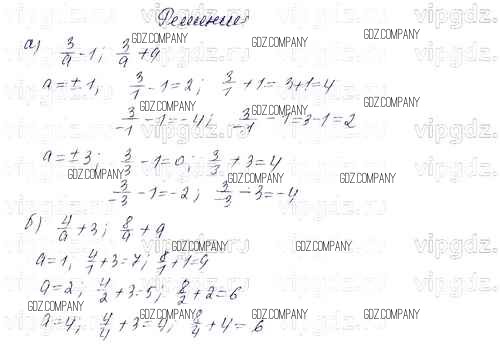 Решение
а) 3/a - 1; 3/a + a
a = ± 1, 3/1 - 1 = 2; 3/1 + 1 = 3+1 = 4
3/-1 - 1 = -4; 3/-1 - 1 = 3-1 = 2
a = ± 3; 3/3 - 1 = 0; 3/3 + 3 = 4
3/-3 - 1 = -2; 3/-3 - 3 = -4
б) 4/a + 3; 8/a + a
a = 1, 4/1 + 3 = 7; 8/1 + 1 = 9
a = 2; 4/2 + 3 = 5; 8/2 + 2 = 6
a = 4; 4/4 + 3 = 4; 8/4 + 4 = 6
GDZ.COMPANY
vipgdz.ru